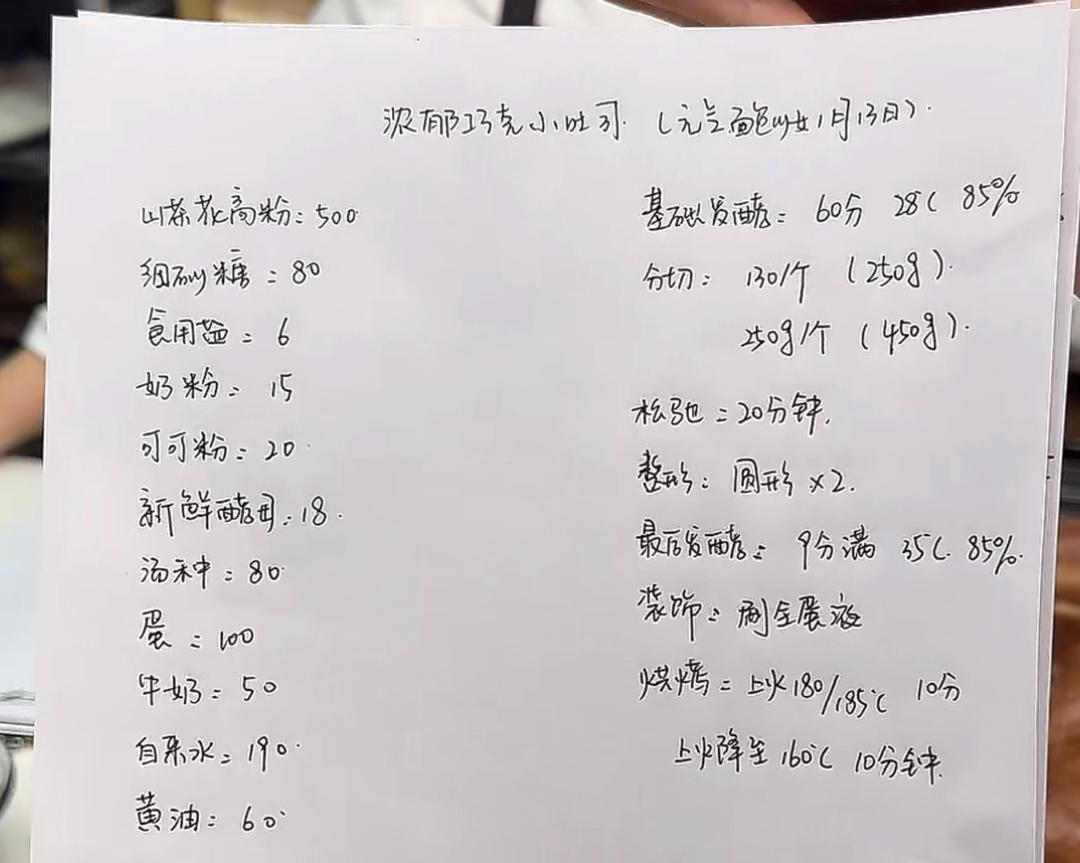 浓郁巧克小吐司 (元气面包少女1月13日)
山茶花高粉: 500
细砂糖: 80
食用盐: 6
奶粉: 15
可可粉: 20
新鲜酵母: 18
汤种: 80
蛋: 100
牛奶: 50
自来水: 190
黄油: 60
基础发酵: 60分 28C 85%
分切: 130/个 (250g)
250g/个 (450g)
松弛: 20分钟
整形: 圆形x2
最后发酵: 9分满 35C 85%
装饰: 刷全蛋液
烘烤: 上火180/185℃ 10分
上火降至160℃ 10分钟